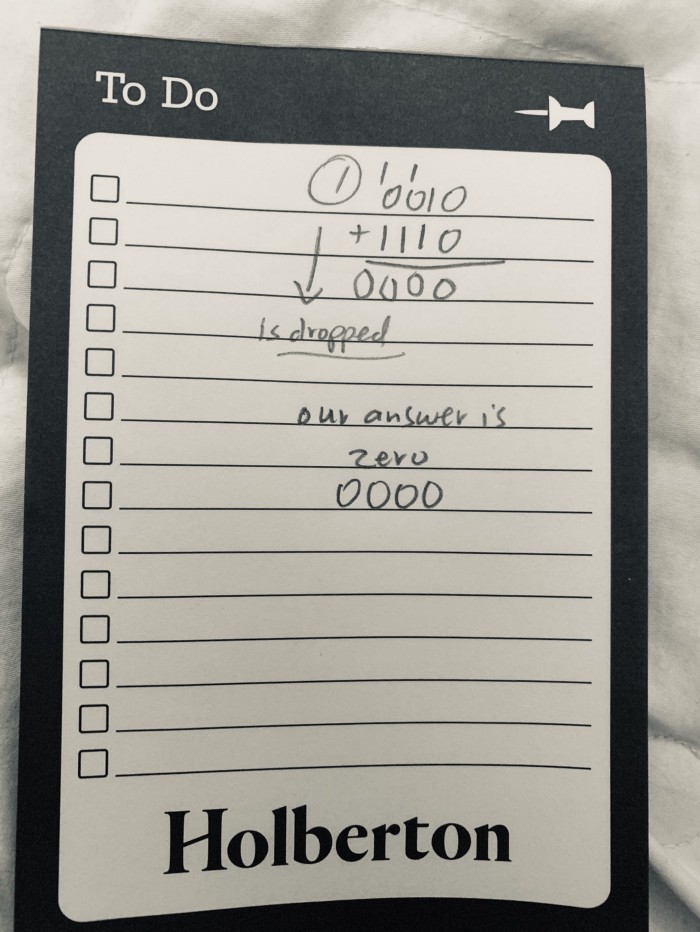 To Do
1 1 1
0010
+1110
0000
is dropped
our answer is
zero
0000
Holberton